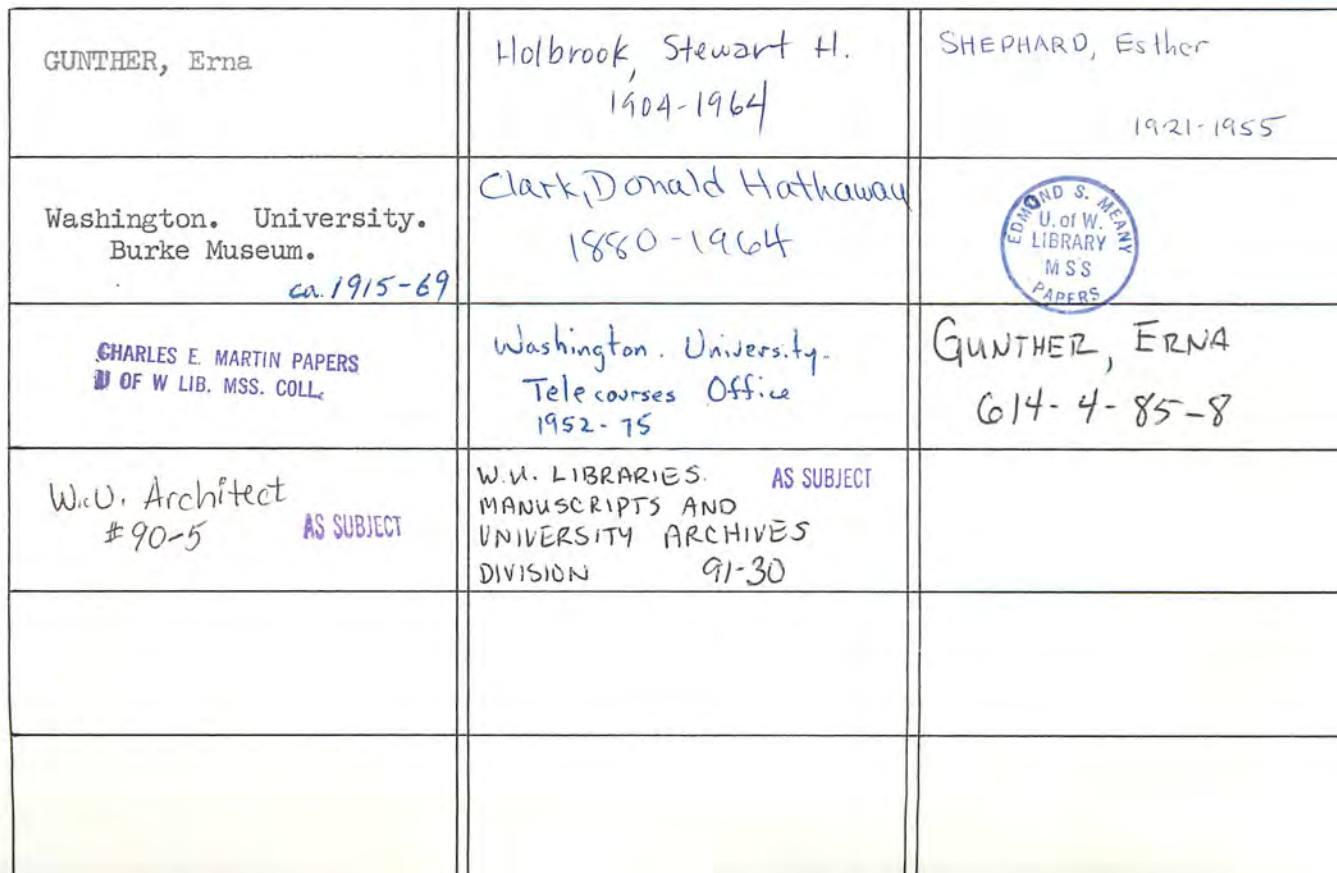 GUNTHER, Erna
Holbrook, Stewart H.
1904-1964
SHEPHARD, Esther
1921-1955
Washington. University.
Burke Museum.
ca. 1915-69
Clark, Donald Hathaway
1880-1964
EDMOND S. MEANY
U. of W.
LIBRARY
MSS
PAPERS
CHARLES E. MARTIN PAPERS
U OF W LIB. MSS. COLL.
Washington. University.
Telecourses Office
1952-75
GUNTHER, ERNA
614-4-85-8
W.U. Architect
#90-5 AS SUBJECT
W.U. LIBRARIES. AS SUBJECT
MANUSCRIPTS AND
UNIVERSITY ARCHIVES
DIVISION 91-30